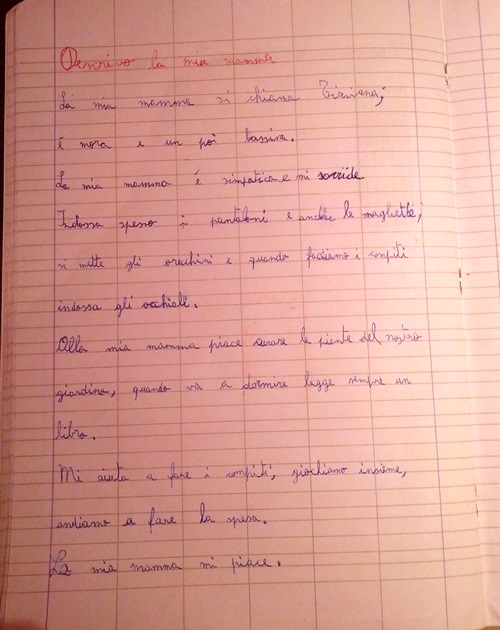 Descrivo la mia mamma
La mia mamma si chiama Tiziana,
é mora e un pò bassina.
La mia mamma é simpatica e mi sorride
Indossa spesso i pantaloni e anche le magliette,
si mette gli orecchini e quando facciamo i compiti
indossa gli occhiali.
Alla mia mamma piace curare le piante del nostro
giardino, quando va a dormire legge sempre un
libro.
Mi aiuta a fare i compiti, giochiamo insieme,
andiamo a fare la spesa.
La mia mamma mi piace.